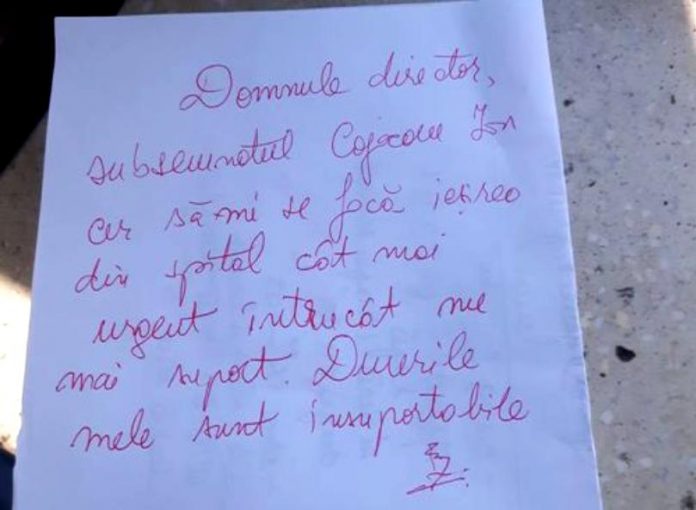 Domnule director,
subsemnatul Cojocaru Ion
cer să-mi se facă ieșirea
din spital cât mai
urgent întrucât nu
mai suport. Durerile
mele sunt insuportabile